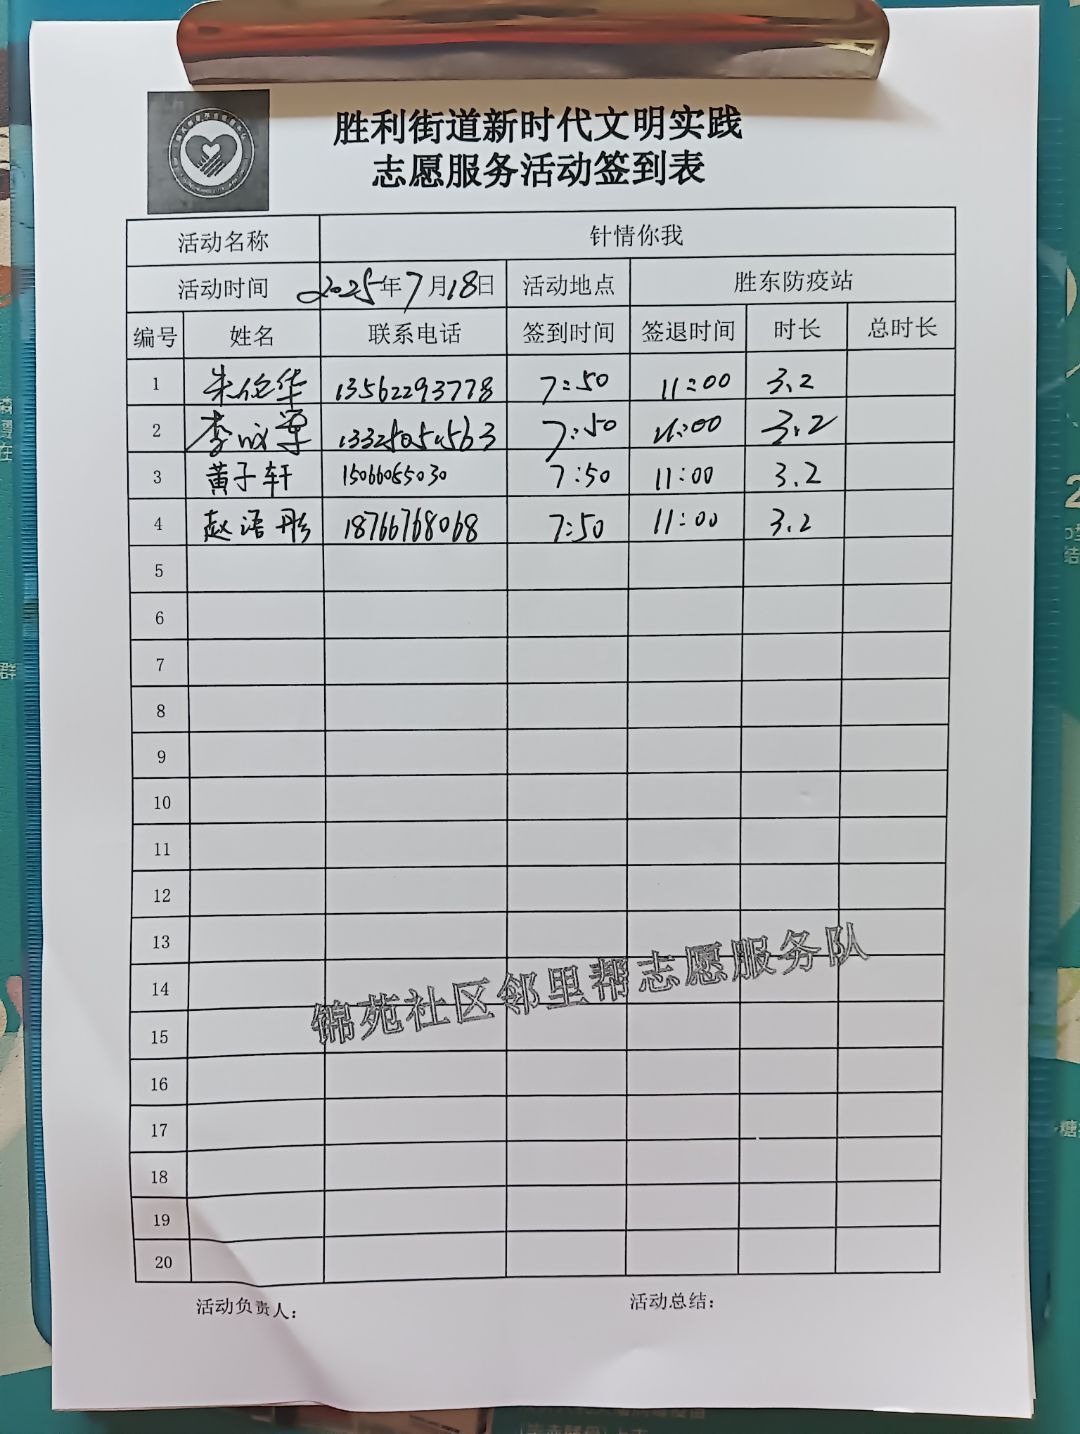 胜利街道新时代文明实践
志愿服务活动签到表
活动名称 针情你我
活动时间 2025年7月18日 活动地点 胜东防疫站
编号 姓名 联系电话 签到时间 签退时间 时长 总时长
1 朱伦华 13562293778 7:50 11:00 3.2
2 李 7:50 11:00 3.2
3 黄子轩 15066065030 7:50 11:00 3.2
4 赵语彤 18766768068 7:50 11:00 3.2
5
6
7
8
9
10
11
12
13
14
锦苑社区邻里帮志愿服务队
15
16
17
18
19
20
活动负责人： 活动总结：